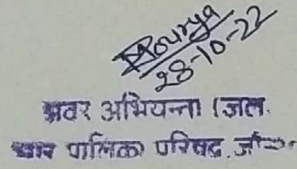 Mourya
28-10-22
अवर अभियन्ता (जल.
पालिका परिषद्, जौ